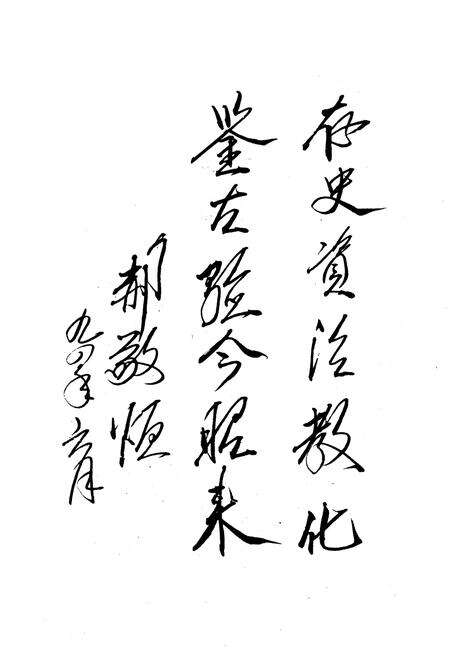 存史資治教化
鉴古驗今昭来
敬恒
九四年六月